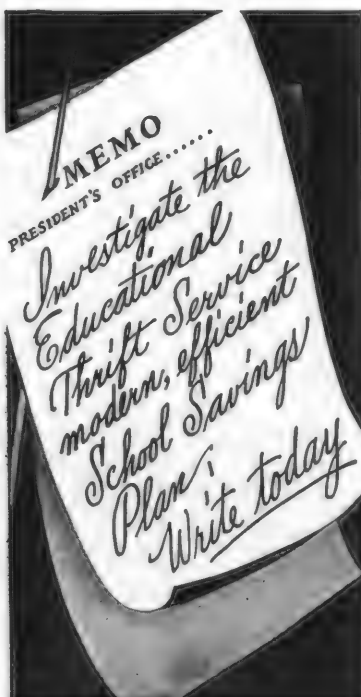 MEMO
PRESIDENT'S OFFICE......
Investigate the
Educational
Thrift Service
modern, efficient
School Savings
Plan;
Write today